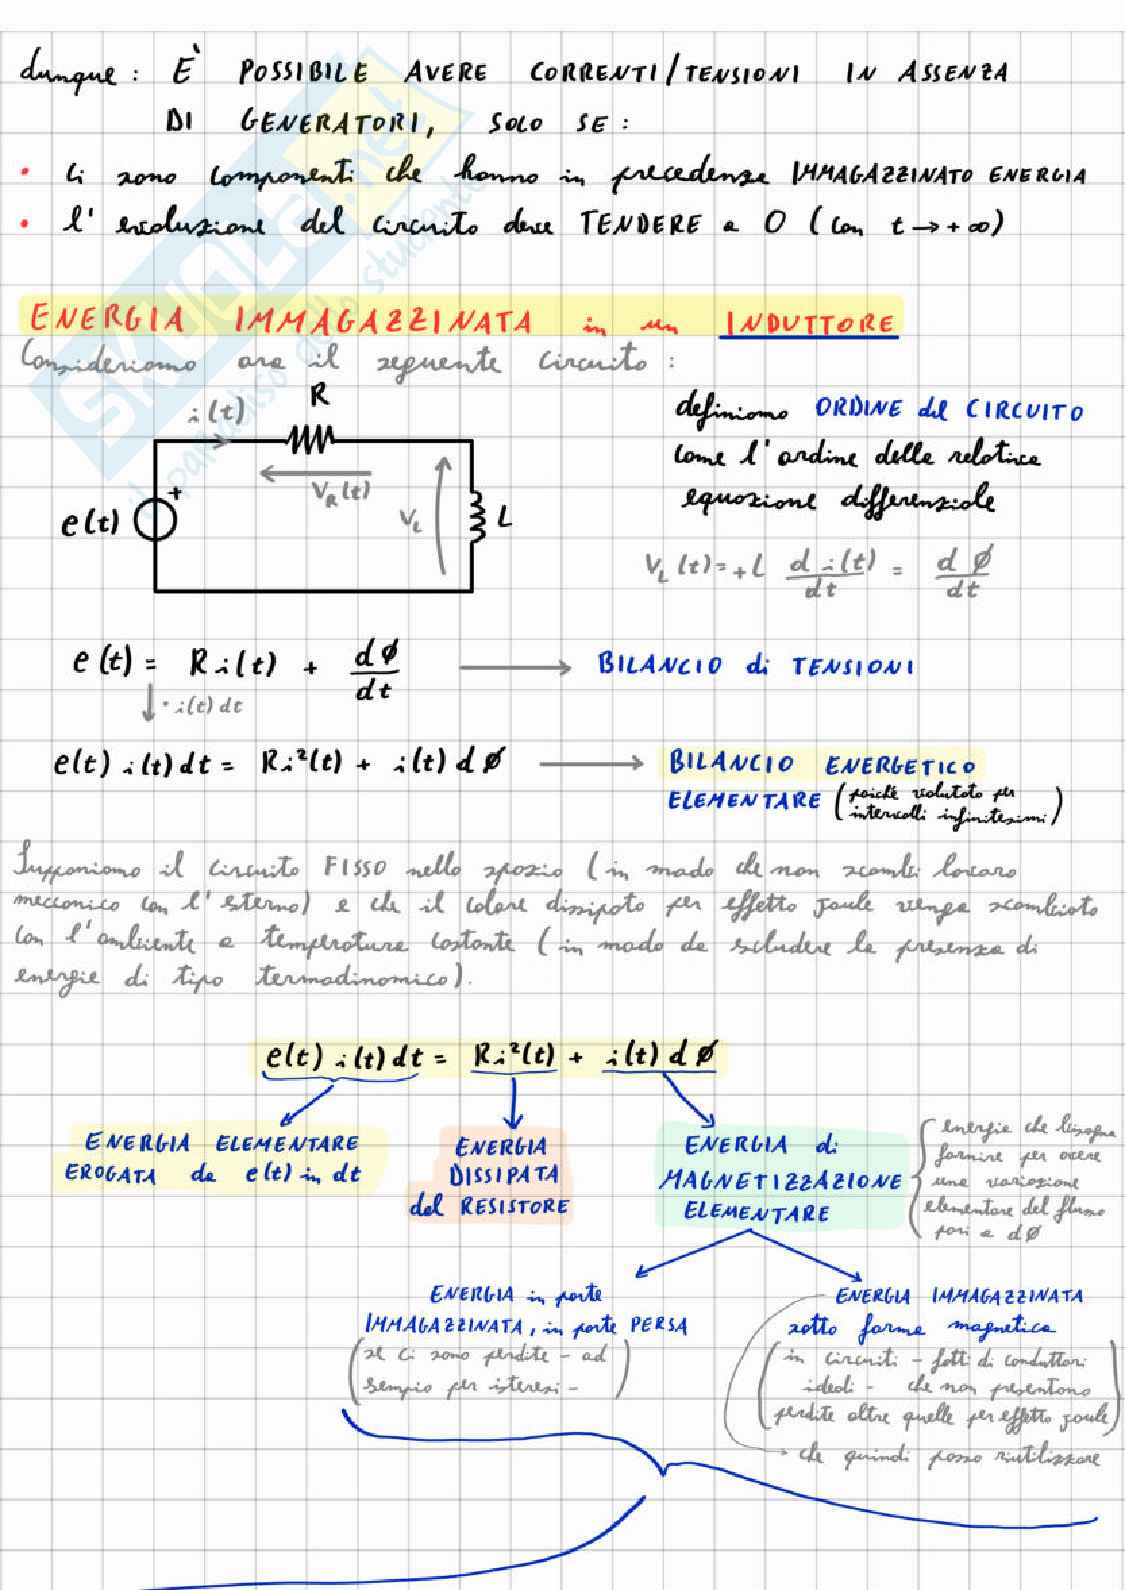 dunque: È POSSIBILE AVERE CORRENTI/TENSIONI IN ASSENZA
DI GENERATORI, SOLO SE:
• Ci sono componenti che hanno in precedenza IMMAGAZZINATO ENERGIA
• l'evoluzione del circuito deve TENDERE a 0 (con t → +∞)
ENERGIA IMMAGAZZINATA in un INDUTTORE
Consideriamo ora il seguente circuito:
i(t)
R
V_R(t)
e(t)
+
V_L
L
definiamo ORDINE del CIRCUITO
come l'ordine della relativa
equazione differenziale
V_L(t) = +L d i(t)/dt = dØ/dt
e(t) = R i(t) + dØ/dt → BILANCIO di TENSIONI
↓ · i(t) dt
e(t) i(t) dt = R i²(t) + i(t) dØ → BILANCIO ENERGETICO
ELEMENTARE (poiché valutato per
intervalli infinitesimi)
Supponiamo il circuito FISSO nello spazio (in modo che non scambi lavoro
meccanico con l'esterno) e che il calore dissipato per effetto Joule venga scambiato
con l'ambiente a temperatura costante (in modo da escludere la presenza di
energie di tipo termodinamico).
e(t) i(t) dt = R i²(t) + i(t) dØ
ENERGIA ELEMENTARE
EROGATA da e(t) in dt
ENERGIA
DISSIPATA
del RESISTORE
ENERGIA di
MAGNETIZZAZIONE
ELEMENTARE
energia che bisogna
fornire per avere
una variazione
elementare del flusso
pari a dØ
ENERGIA in parte
IMMAGAZZINATA, in parte PERSA
(se ci sono perdite - ad
esempio per isteresi -)
ENERGIA IMMAGAZZINATA
sotto forma magnetica
(in circuiti - fatti di conduttori
ideali - che non presentano
perdite oltre quelle per effetto joule)
→ che quindi posso riutilizzare
SKUOLA.net
il paradiso dello studente